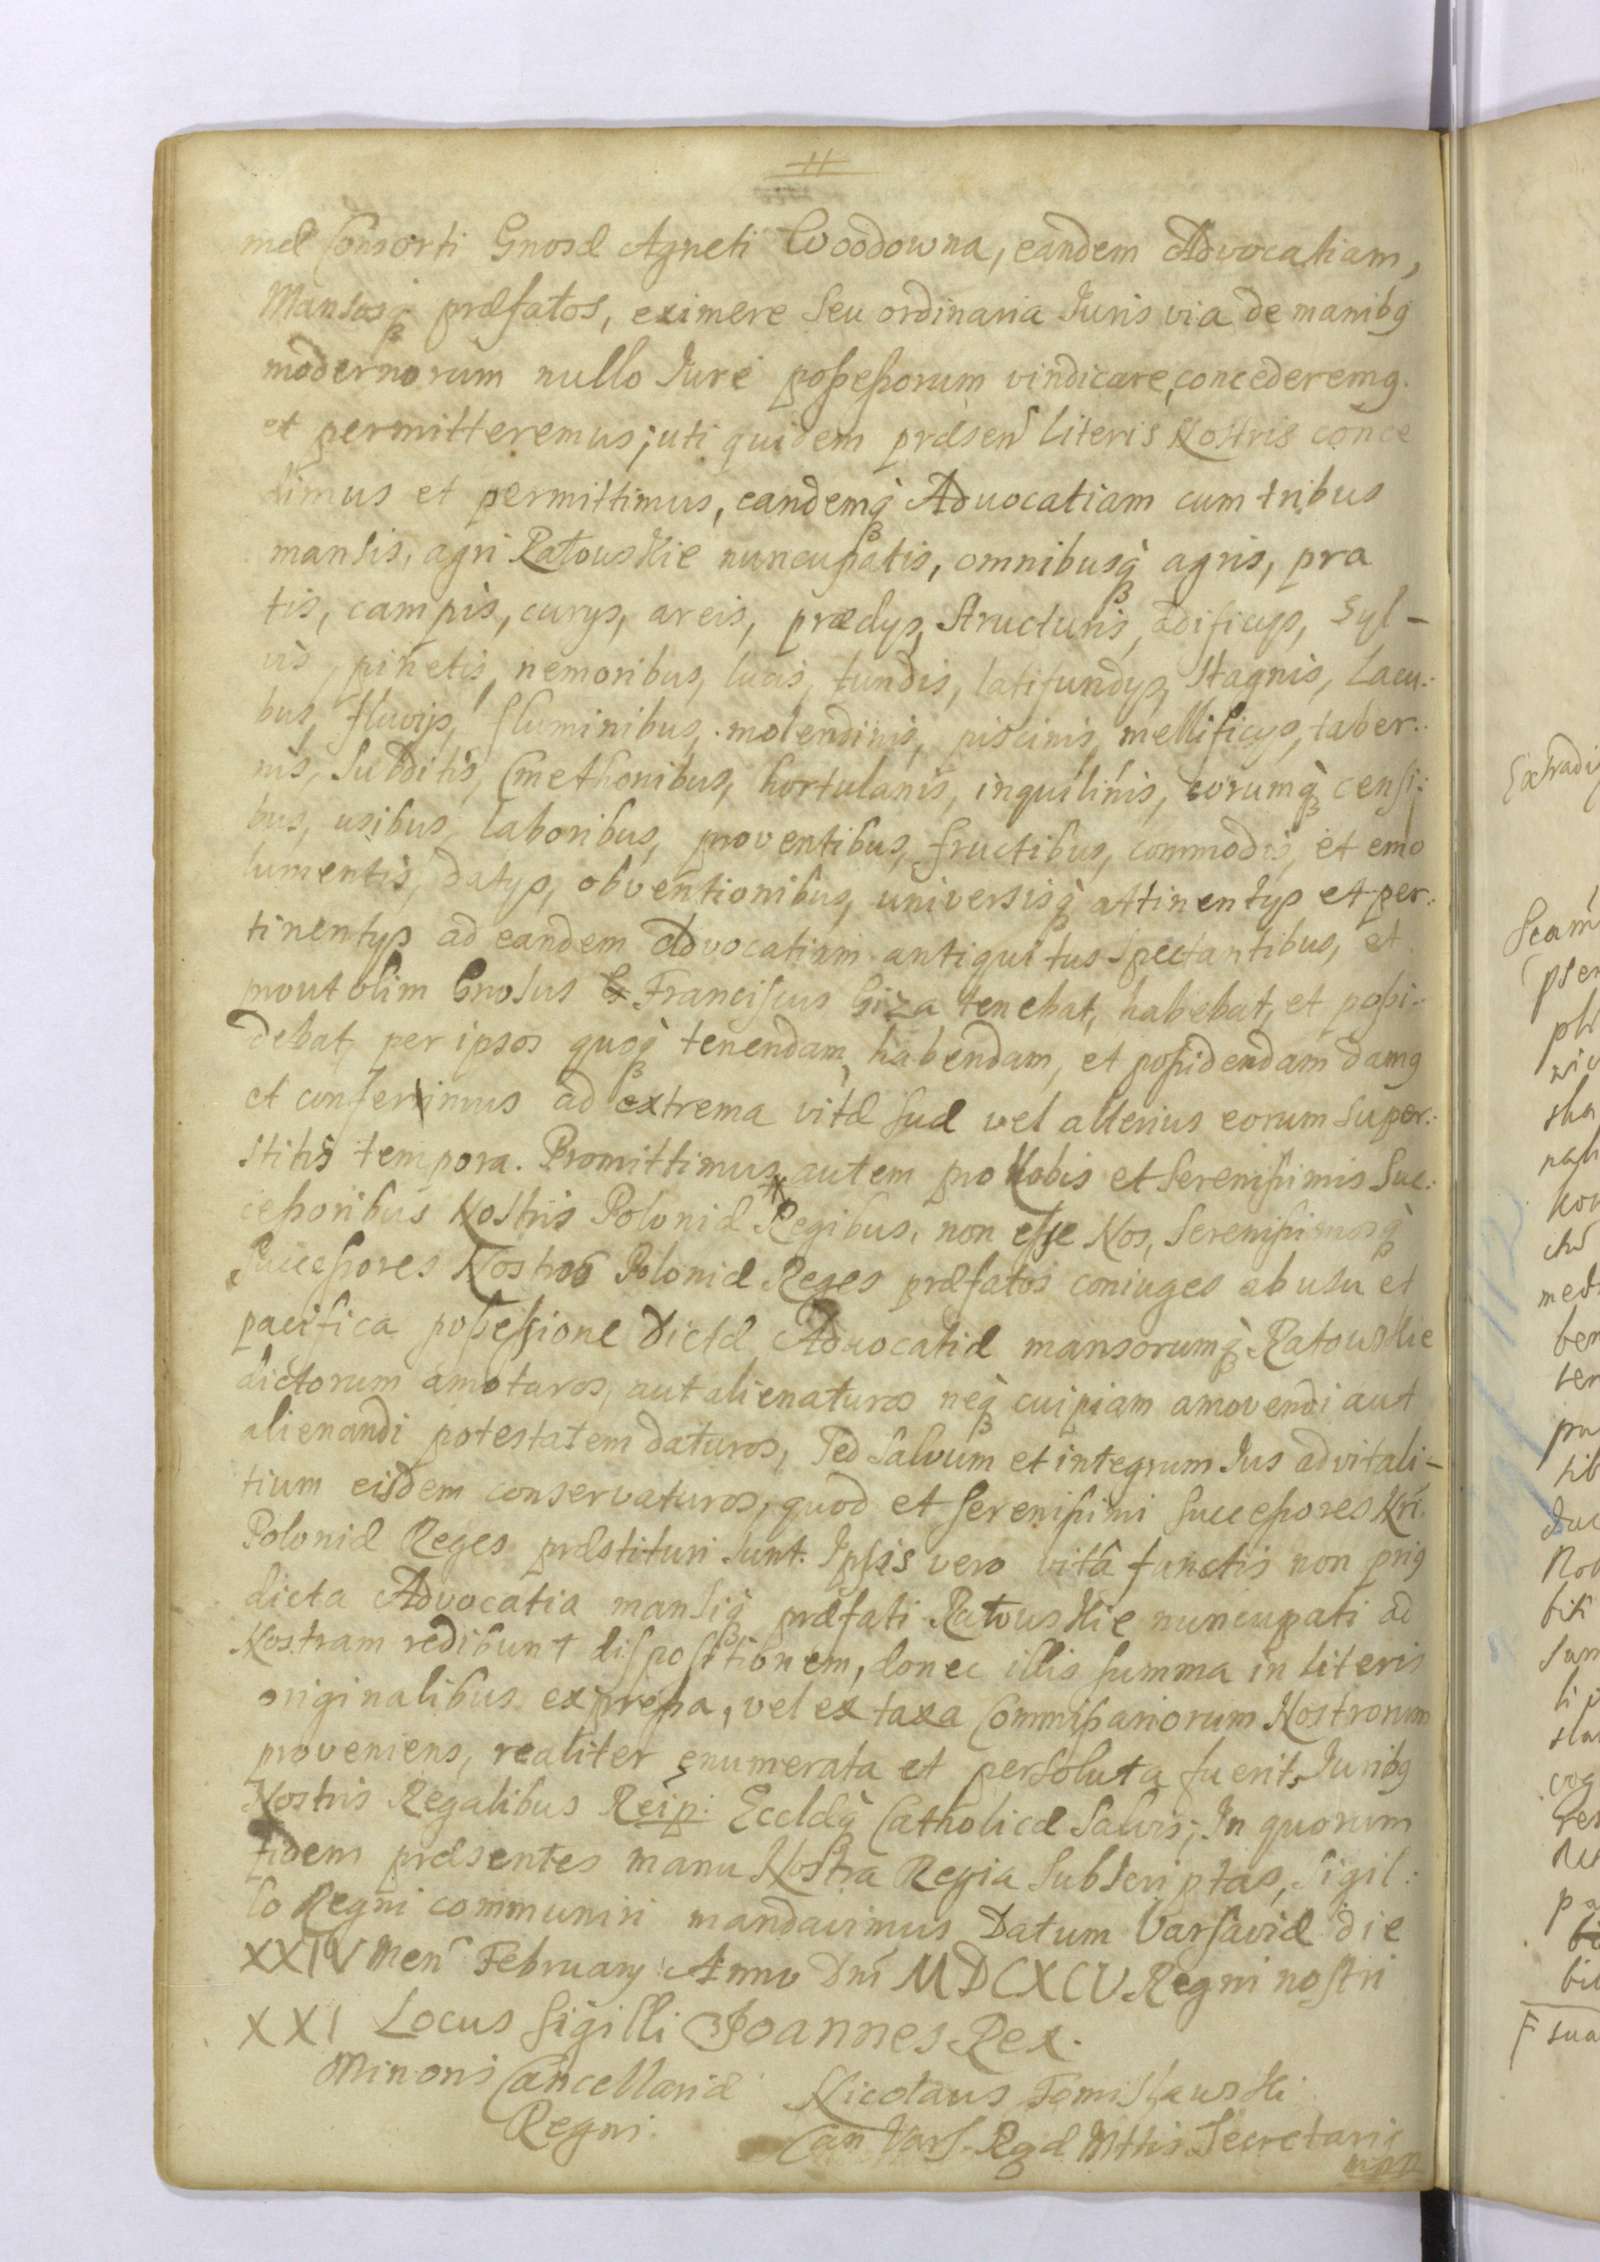 11
mæ Consorti Gnosæ Agneti Woodowna, eandem Advocatiam,
Mansosq præfatos, eximere seu ordinaria Iuris via de manibq
modernorum nullo Iure possessorum vindicare, concederemq.
et permitteremus; uti quidem præsen literis Nostris conce
dimus et permittimus, eandemq Aduocatiam cum tribus
mansis, agri Ratouskie nuncupatis, omnibusq agris, pra
tis, campis, curys, areis, prædys, structuris, ædificys, syl-
vis, pinetis, nemoribus, lucis, fundis, latifundys, stagnis, Lacu:
bus, fluvijs, fluminibus, molendinis, piscinis, mellificys, taber:
nis, subditis, Cmethonibus, hortulanis, inquilinis, eorumq censi:
bus, usibus, laboribus, proventibus, fructibus, commodis, et emo
lumentis, datys, obventionibus, universisq attinentys et per:
tinentys ad eandem Advocatiam antiquitus spectantibus, et
prout olim Gnosus Franciscus Giza tenebat, habebat, et possi:
debat, per ipsos quoq tenendam, habendam, et possidendam damq
et conferimus ad extrema vitæ suæ vel alterius eorum super:
stitis tempora. Promittimus autem pro Nobis et Serenissimis Suc:
cessoribus Nostris Poloniæ Regibus, non esse Nos, Serenissimosq
Successores Nostros Poloniæ Reges præfatos coniuges ab usu et
pacifica possessione Dictæ Aduocatiæ mansorumq Ratouskie
dictorum amoturos, aut alienaturos neq cuipiam amovendi aut
alienandi potestatem daturos, sed salvum et integrum Ius advitali-
tium eisdem conservaturos, quod et Serenissimi Successores Nri
Poloniæ Reges præstituri sunt. Ipsis vero vitâ functis non priq
dicta Advocatia mansiq præfati Ratouskie nuncupati ad
Nostram redibunt dispositionem, donec illis summa in literis
originalibus expressa, vel ex taxa Commissariorum Nostrorum
proveniens, realiter enumerata et persoluta fuerit, Iuribq
Nostris Regalibus Reip: Ecclæq Catholicæ salvis; In quorum
fidem præsentes manu Nostra Regia subscriptas, sigil:
lo Regni communiri mandavimus Datum Varsaviæ die
XXIV Men February Anno Dni MDCXCV Regni nostri
XXI Locus Sigilli Joannes Rex.
Minoris Cancellariæ Nicolaus Tomisławski
Regni. Can Vars. Rgæ Mttis Secretariq
mpp